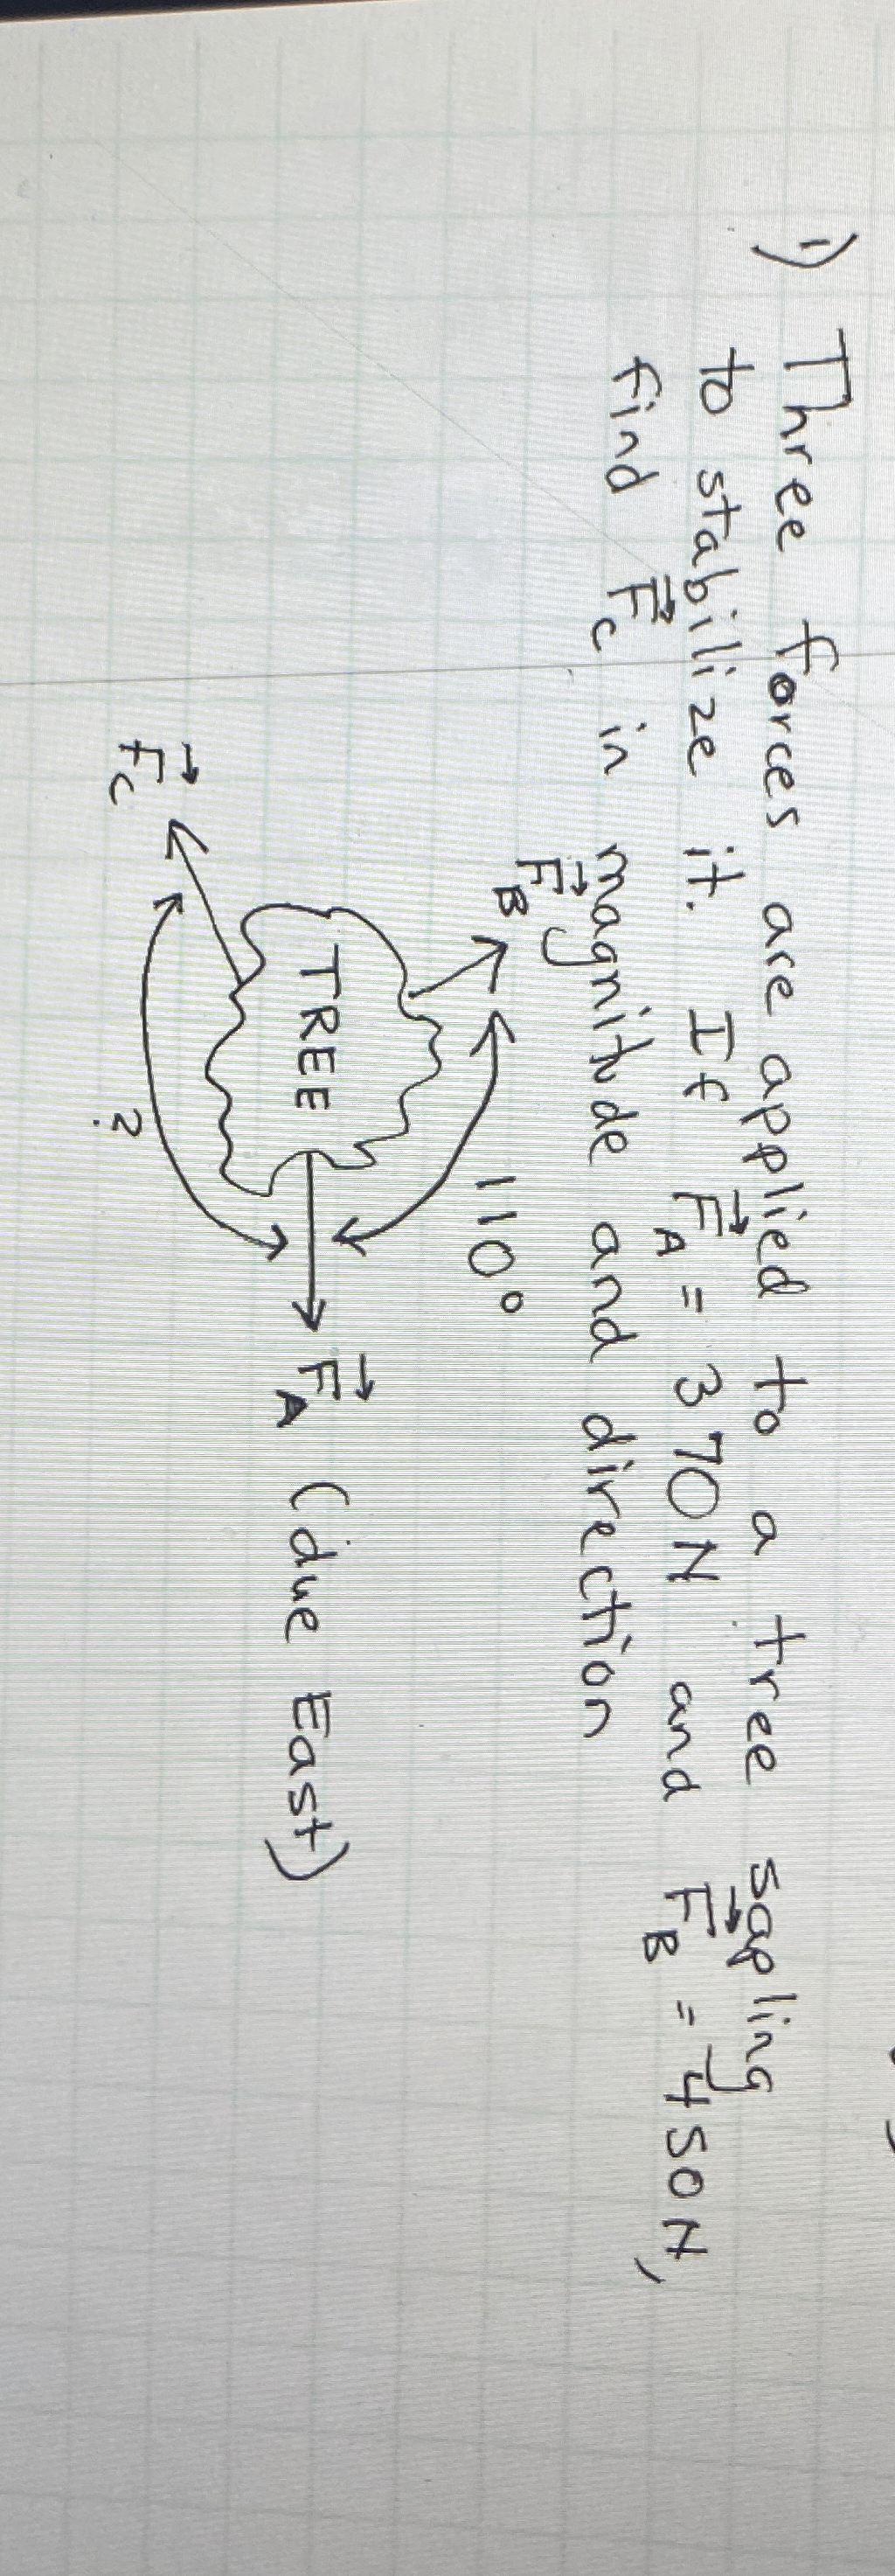 1) Three forces are applied to a tree sapling
to stabilize it. If F⃗A = 370N and F⃗B = 450N,
find F⃗c in magnitude and direction
F⃗B
110°
TREE
F⃗A (due East)
F⃗c
?